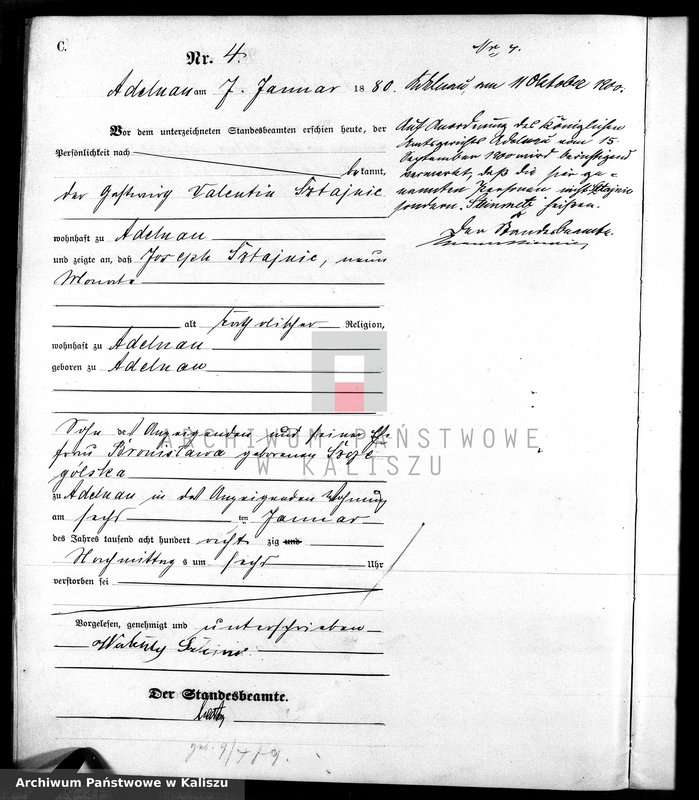 C.
Nr. 4.
Adelnau am 7. Januar 1880.
Vor dem unterzeichneten Standesbeamten erschien heute, der
Persönlichkeit nach
bekannt,
der Gastwirth Valentin Sztajnic
wohnhaft zu Adelnau
und zeigte an, daß Joseph Sztajnic, neun
Monate
alt katholischer Religion,
wohnhaft zu Adelnau
geboren zu Adelnau
Sohn des Anzeigenden und seiner Ehe-
frau Bronislawa geborenen
zu Adelnau in des Anzeigenden Wohnung
am sechs ten Januar
des Jahres tausend acht hundert acht zig und
Nachmittags um sechs Uhr
verstorben sei
Vorgelesen, genehmigt und unterschrieben
Der Standesbeamte.
Nr. 4.
Adelnau, am 11 Oktober 1900.
Auf Anordnung des Königlichen
Amtsgerichts Adelnau vom 15.
September 1900 wird beirichtigend
vermerkt, daß die hier ge-
nannten Personen nicht Sztajnic
sondern "Steinmetz" heißen.
Der Standesbeamte.
ARCHIWUM PAŃSTWOWE
W KALISZU
Archiwum Państwowe w Kaliszu